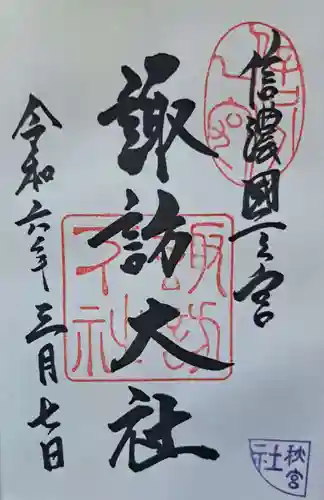 信濃國一之宮
諏訪大社
令和六年三月七日
諏訪大社
秋宮
社